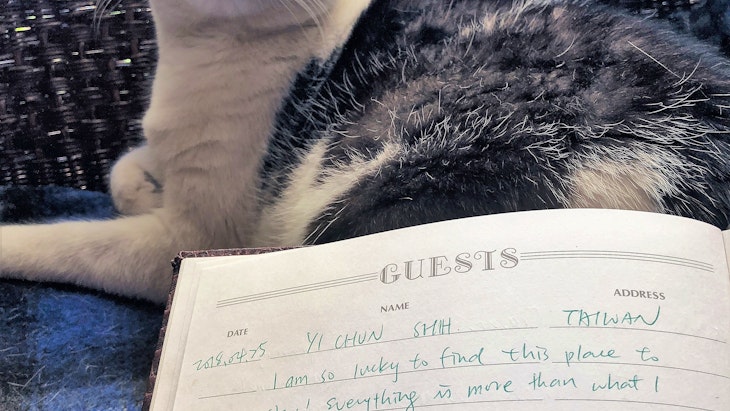 GUESTS
DATE NAME ADDRESS
YI CHUN SHIH TAIWAN
I am so lucky to find this place to
everything is more than what I